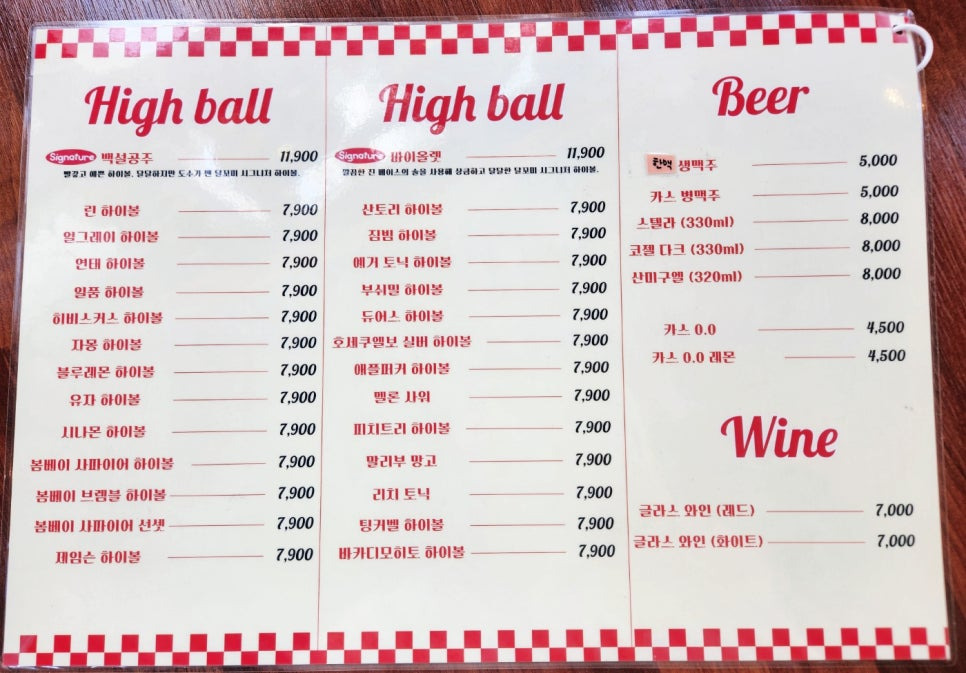 High ball
Signature 백설공주 11,900
빨갛고 예쁜 하이볼. 달달하지만 도수가 쎈 달꼬미 시그니처 하이볼.
린 하이볼 7,900
얼그레이 하이볼 7,900
연태 하이볼 7,900
일품 하이볼 7,900
히비스커스 하이볼 7,900
자몽 하이볼 7,900
블루레몬 하이볼 7,900
유자 하이볼 7,900
시나몬 하이볼 7,900
봄베이 사파이어 하이볼 7,900
봄베이 브렘블 하이볼 7,900
봄베이 사파이어 선셋 7,900
제임슨 하이볼 7,900
High ball
Signature 바이올렛 11,900
깔끔한 진 베이스의 술을 사용해 상큼하고 달달한 달꼬미 시그니처 하이볼.
산토리 하이볼 7,900
짐빔 하이볼 7,900
예거 토닉 하이볼 7,900
부쉬밀 하이볼 7,900
듀어스 하이볼 7,900
호세쿠엘보 실버 하이볼 7,900
애플퍼커 하이볼 7,900
멜론 사워 7,900
피치트리 하이볼 7,900
말리부 망고 7,900
리치 토닉 7,900
팅커벨 하이볼 7,900
바카디모히토 하이볼 7,900
Beer
한맥 생맥주 5,000
카스 병맥주 5,000
스텔라 (330ml) 8,000
코젤 다크 (330ml) 8,000
산미구엘 (320ml) 8,000
카스 0.0 4,500
카스 0.0 레몬 4,500
Wine
글라스 와인 (레드) 7,000
글라스 와인 (화이트) 7,000